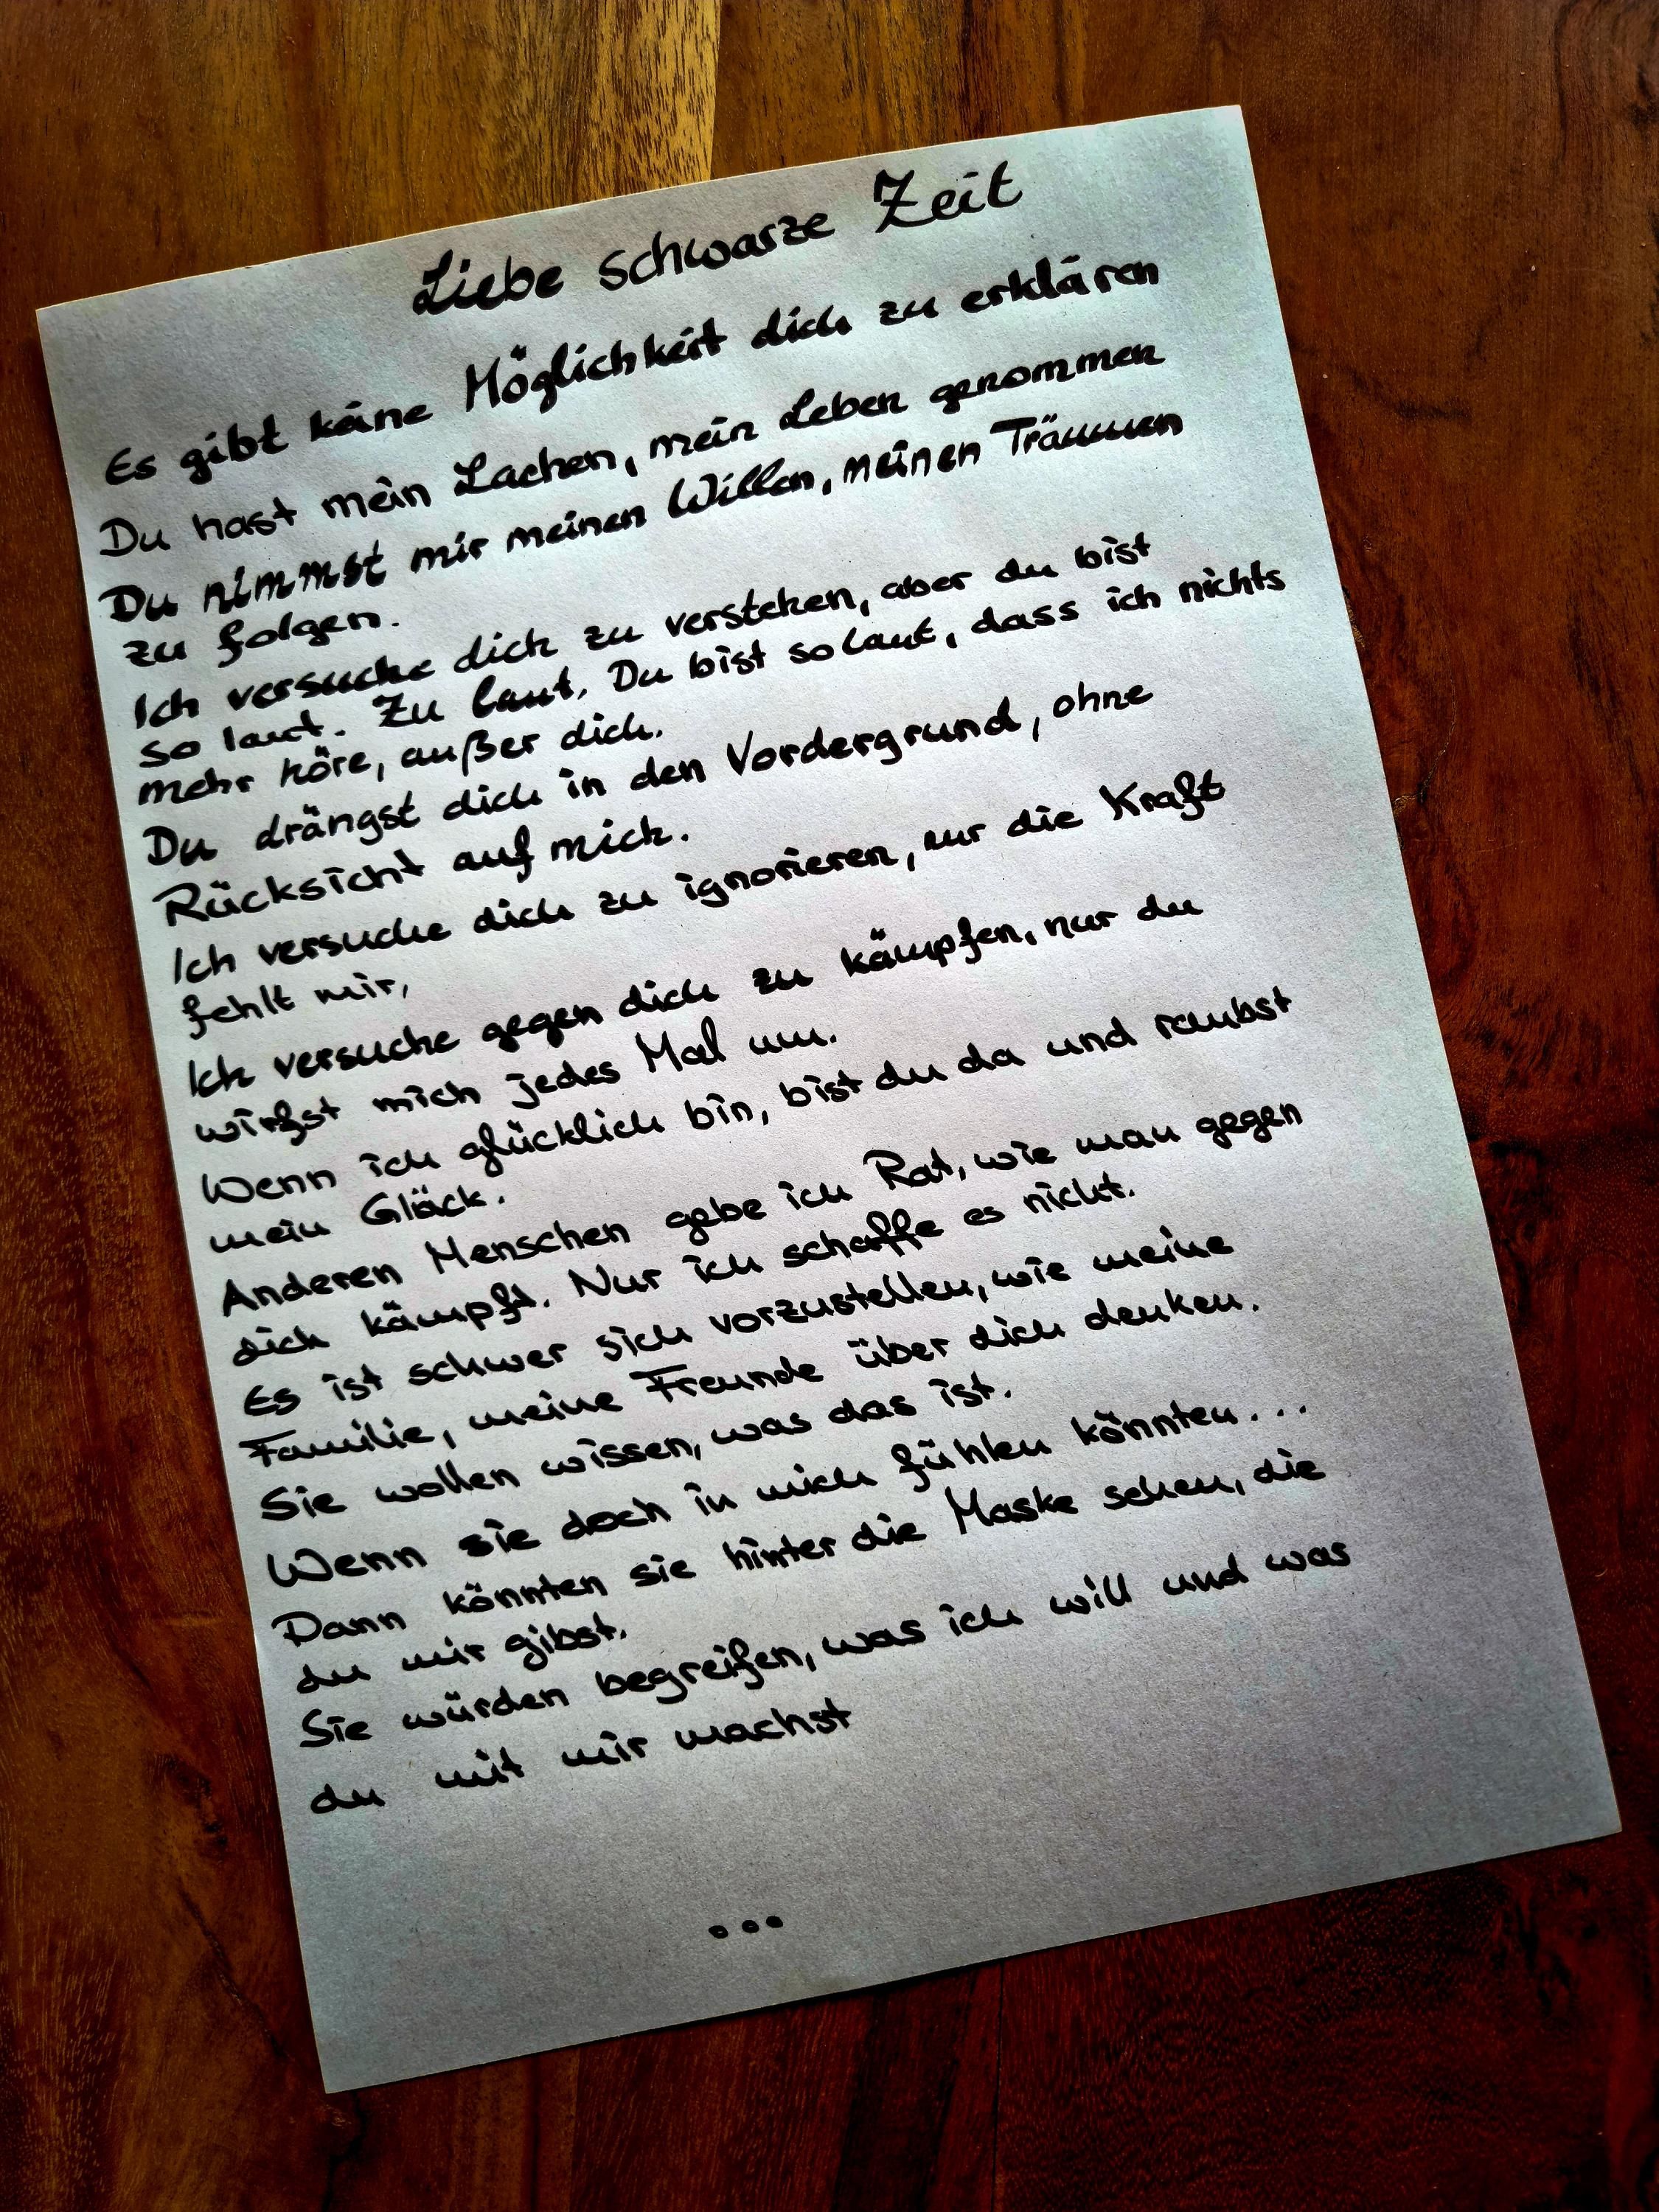 Liebe schwarze Zeit
Es gibt keine Möglichkeit dich zu erklären
Du hast mein Lachen, mein Leben genommen
Du nimmst mir meinen Willen, meinen Träumen
zu folgen.
Ich versuche dich zu verstehen, aber du bist
so laut. Zu laut. Du bist so laut, dass ich nichts
mehr höre, außer dich.
Du drängst dich in den Vordergrund, ohne
Rücksicht auf mich.
Ich versuche dich zu ignorieren, nur die Kraft
fehlt mir,
Ich versuche gegen dich zu kämpfen, nur du
wirfst mich jedes Mal um.
Wenn ich glücklich bin, bist du da und raubst
mein Glück.
Anderen Menschen gebe ich Rat, wie man gegen
dich kämpft. Nur ich schaffe es nicht.
Es ist schwer sich vorzustellen, wie meine
Familie, meine Freunde über dich denken.
Sie wollen wissen, was das ist.
Wenn sie doch in mich fühlen könnten...
Dann könnten sie hinter die Maske sehen, die
du mir gibst.
Sie würden begreifen, was ich will und was
du mit mir machst
...